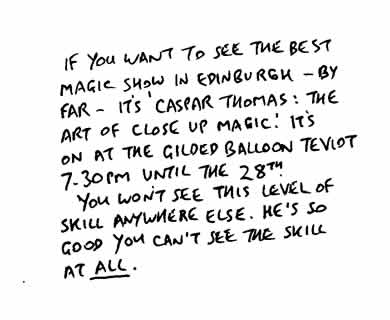 IF YOU WANT TO SEE THE BEST
MAGIC SHOW IN EDINBURGH – BY
FAR – IT'S 'CASPAR THOMAS: THE
ART OF CLOSE UP MAGIC.' IT'S
ON AT THE GILDED BALLOON TEVIOT
7.30PM UNTIL THE 28TH.
YOU WON'T SEE THIS LEVEL OF
SKILL ANYWHERE ELSE. HE'S SO
GOOD YOU CAN'T SEE THE SKILL
AT ALL.